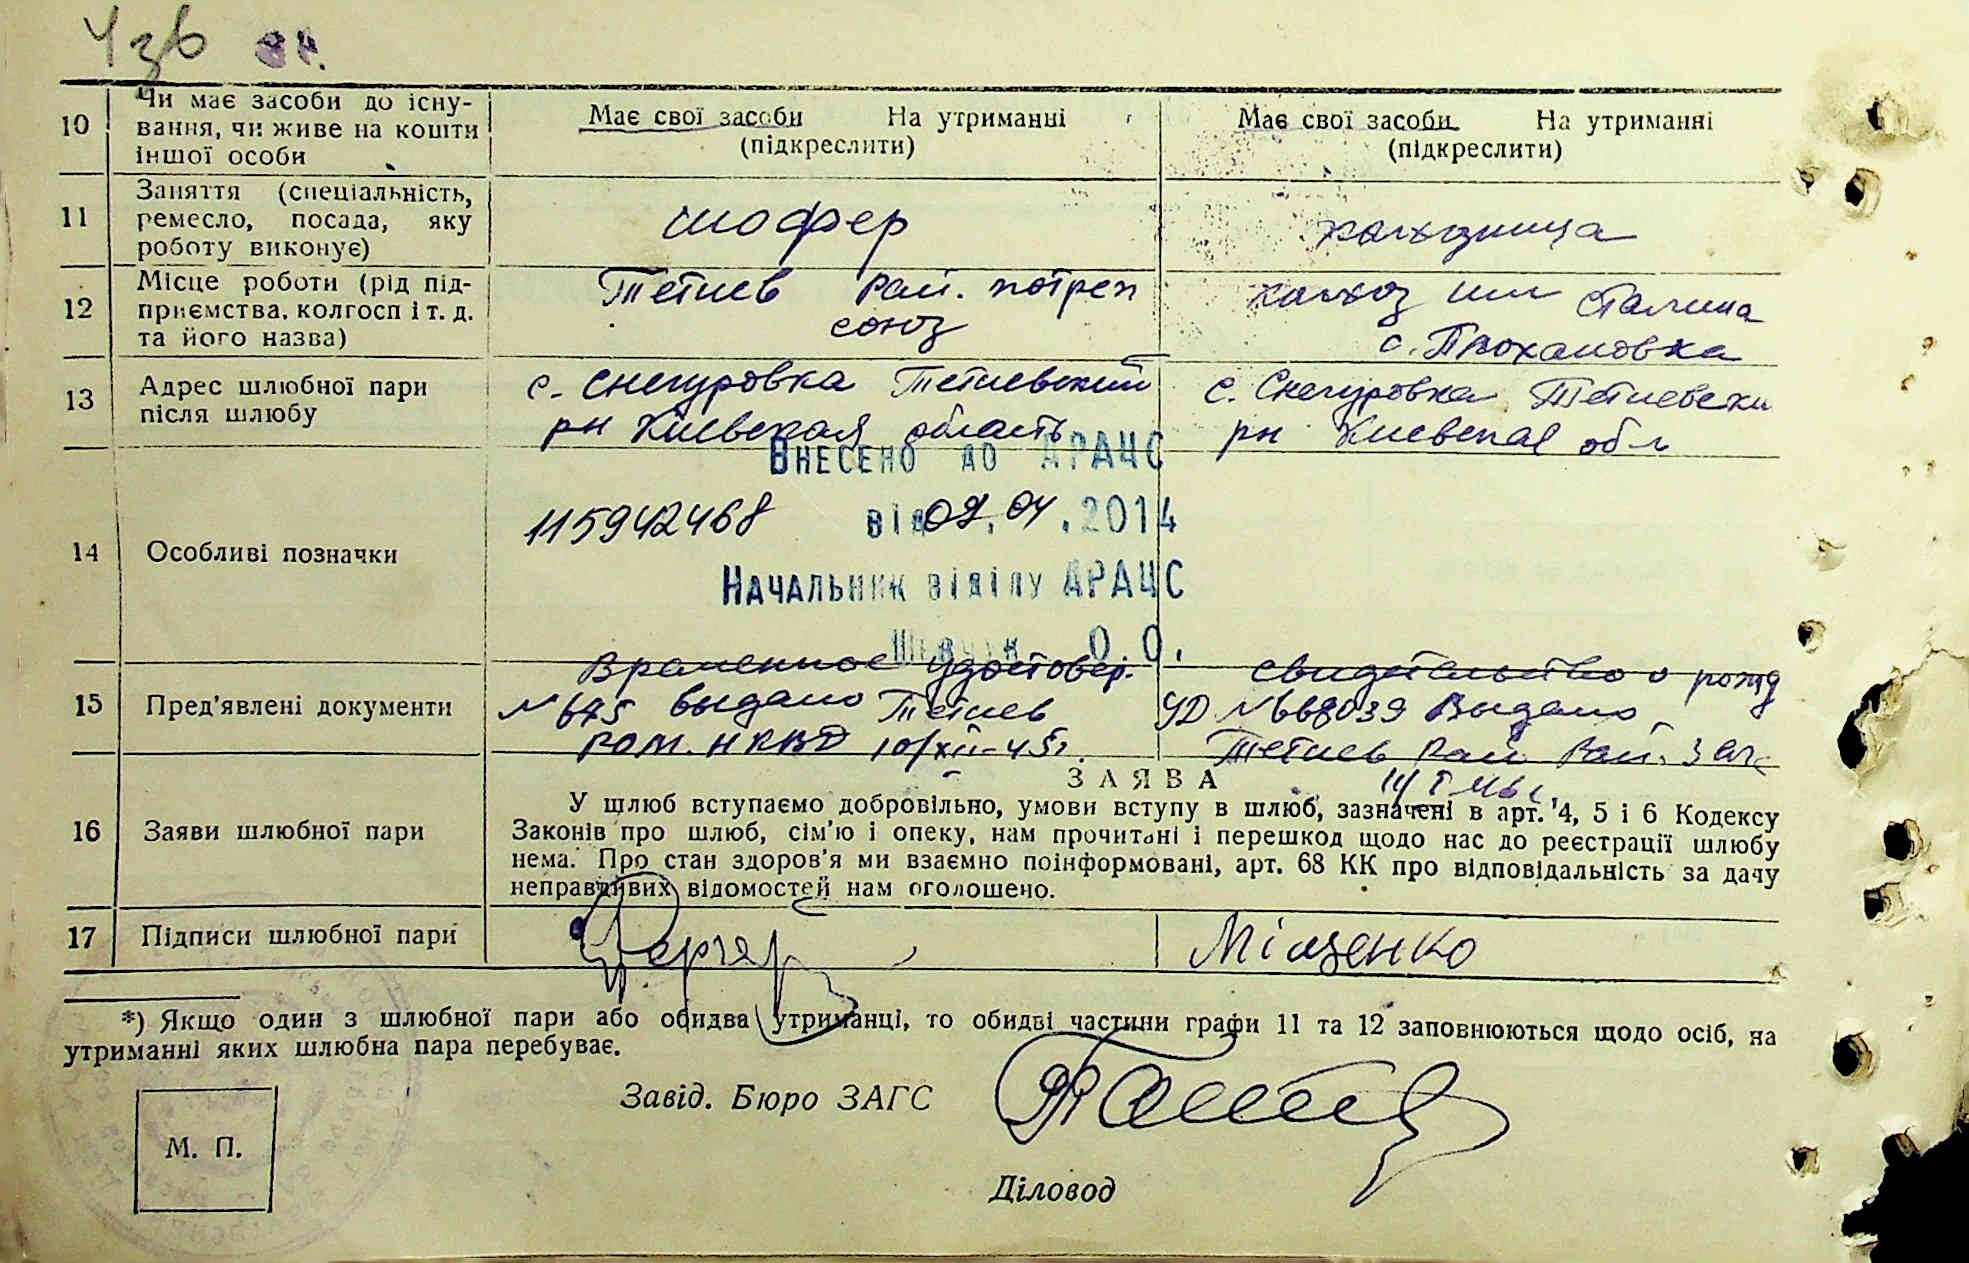 10
Чи має засоби до існу-
вання, чи живе на кошти
іншої особи
Має свої засоби На утриманні
(підкреслити)
Має свої засоби На утриманні
(підкреслити)
11
Заняття (спеціальність,
ремесло, посада, яку
роботу виконує)
шофер
колхозница
12
Місце роботи (рід під-
приємства, колгосп і т. д.
та його назва)
Тетиев Рай. потреп
союз
колхоз им Сталина
с.
13
Адрес шлюбної пари
після шлюбу
с. Снегуровка Тетиевский
рн Киевская область
с. Снегуровка Тетиевски
рн Киевская обл
14
Особливі позначки
Внесено до ДРАЦС
115942468
від 09.04.2014
Начальник відділу ДРАЦС
О.О.
15
Пред'явлені документи
Временное удостовер.
№ 675 выдано Тетиев
РОМ. НКВД 10/XII-45г.
свидетельство о рожд
УД № 668039 Выдано
Тетиев Рай
16
Заяви шлюбної пари
ЗАЯВА
У шлюб вступаємо добровільно, умови вступу в шлюб, зазначені в арт. 4, 5 і 6 Кодексу
Законів про шлюб, сім'ю і опеку, нам прочитані і перешкод щодо нас до реєстрації шлюбу
нема. Про стан здоров'я ми взаємно поінформовані, арт. 68 КК про відповідальність за дачу
неправдивих відомостей нам оголошено.
17
Підписи шлюбної пари
Міщенко
*) Якщо один з шлюбної пари або обидва утриманці, то обидві частини графи 11 та 12 заповнюються щодо осіб, на
утриманні яких шлюбна пара перебуває.
Завід. Бюро ЗАГС
М. П.
Діловод